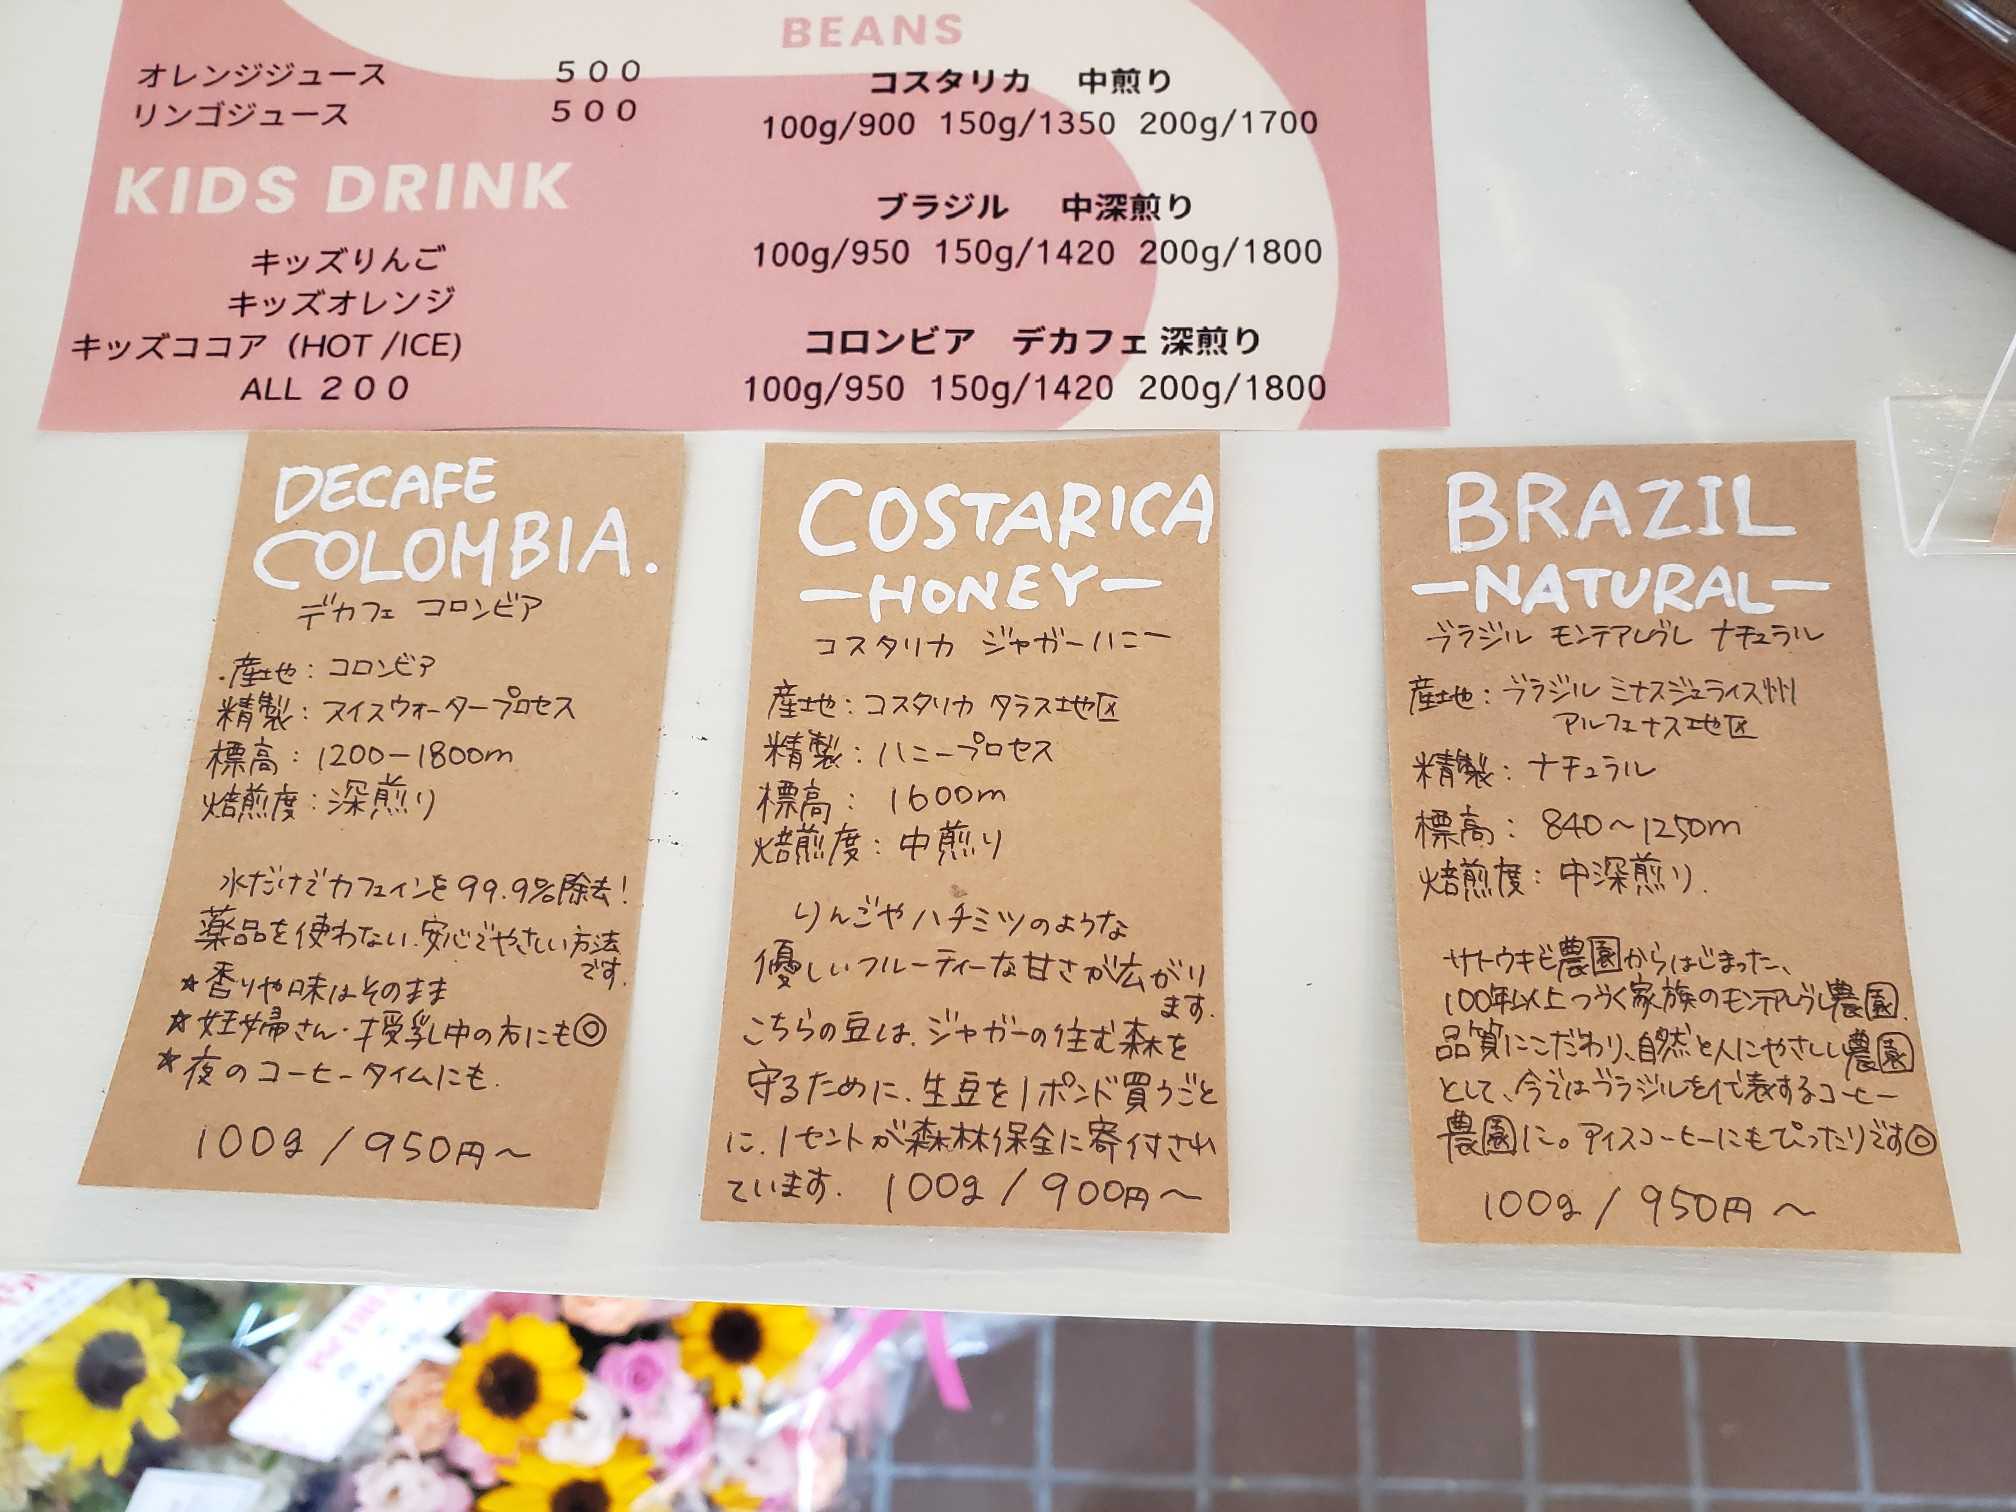 オレンジジュース 500
リンゴジュース 500
KIDS DRINK
キッズりんご
キッズオレンジ
キッズココア (HOT /ICE)
ALL 200
BEANS
コスタリカ 中煎り
100g/900 150g/1350 200g/1700
ブラジル 中深煎り
100g/950 150g/1420 200g/1800
コロンビア デカフェ 深煎り
100g/950 150g/1420 200g/1800
DECAFE
COLOMBIA.
デカフェ コロンビア
・産地:コロンビア
精製:スイスウォータープロセス
標高:1200-1800m
焙煎度:深煎り
水だけでカフェインを99.9%除去!
薬品を使わない、安心でやさしい方法
です。
★香りや味はそのまま
★妊婦さん・授乳中の方にも◎
★夜のコーヒータイムにも.
100g/950円〜
COSTARICA
-HONEY-
コスタリカ ジャガーハニー
産地:コスタリカ タラス地区
精製:ハニープロセス
標高: 1600m
焙煎度:中煎り
りんごやハチミツのような
優しいフルーティーな甘さが広がり
ます.
こちらの豆は、ジャガーの住む森を
守るために、生豆を1ポンド買うごと
に、1セントが森林保全に寄付され
ています. 100g/900円〜
BRAZIL
-NATURAL-
ブラジル モンテアレグレ ナチュラル
産地:ブラジル ミナスジェライス州
アルフェナス地区
精製:ナチュラル
標高: 840〜1250m
焙煎度:中深煎り.
サトウキビ農園からはじまった、
100年以上つづく家族のモンテアレグレ農園.
品質にこだわり、自然と人にやさしい農園
として、今ではブラジルを代表するコーヒー
農園に。アイスコーヒーにもぴったりです◎
100g/950円〜